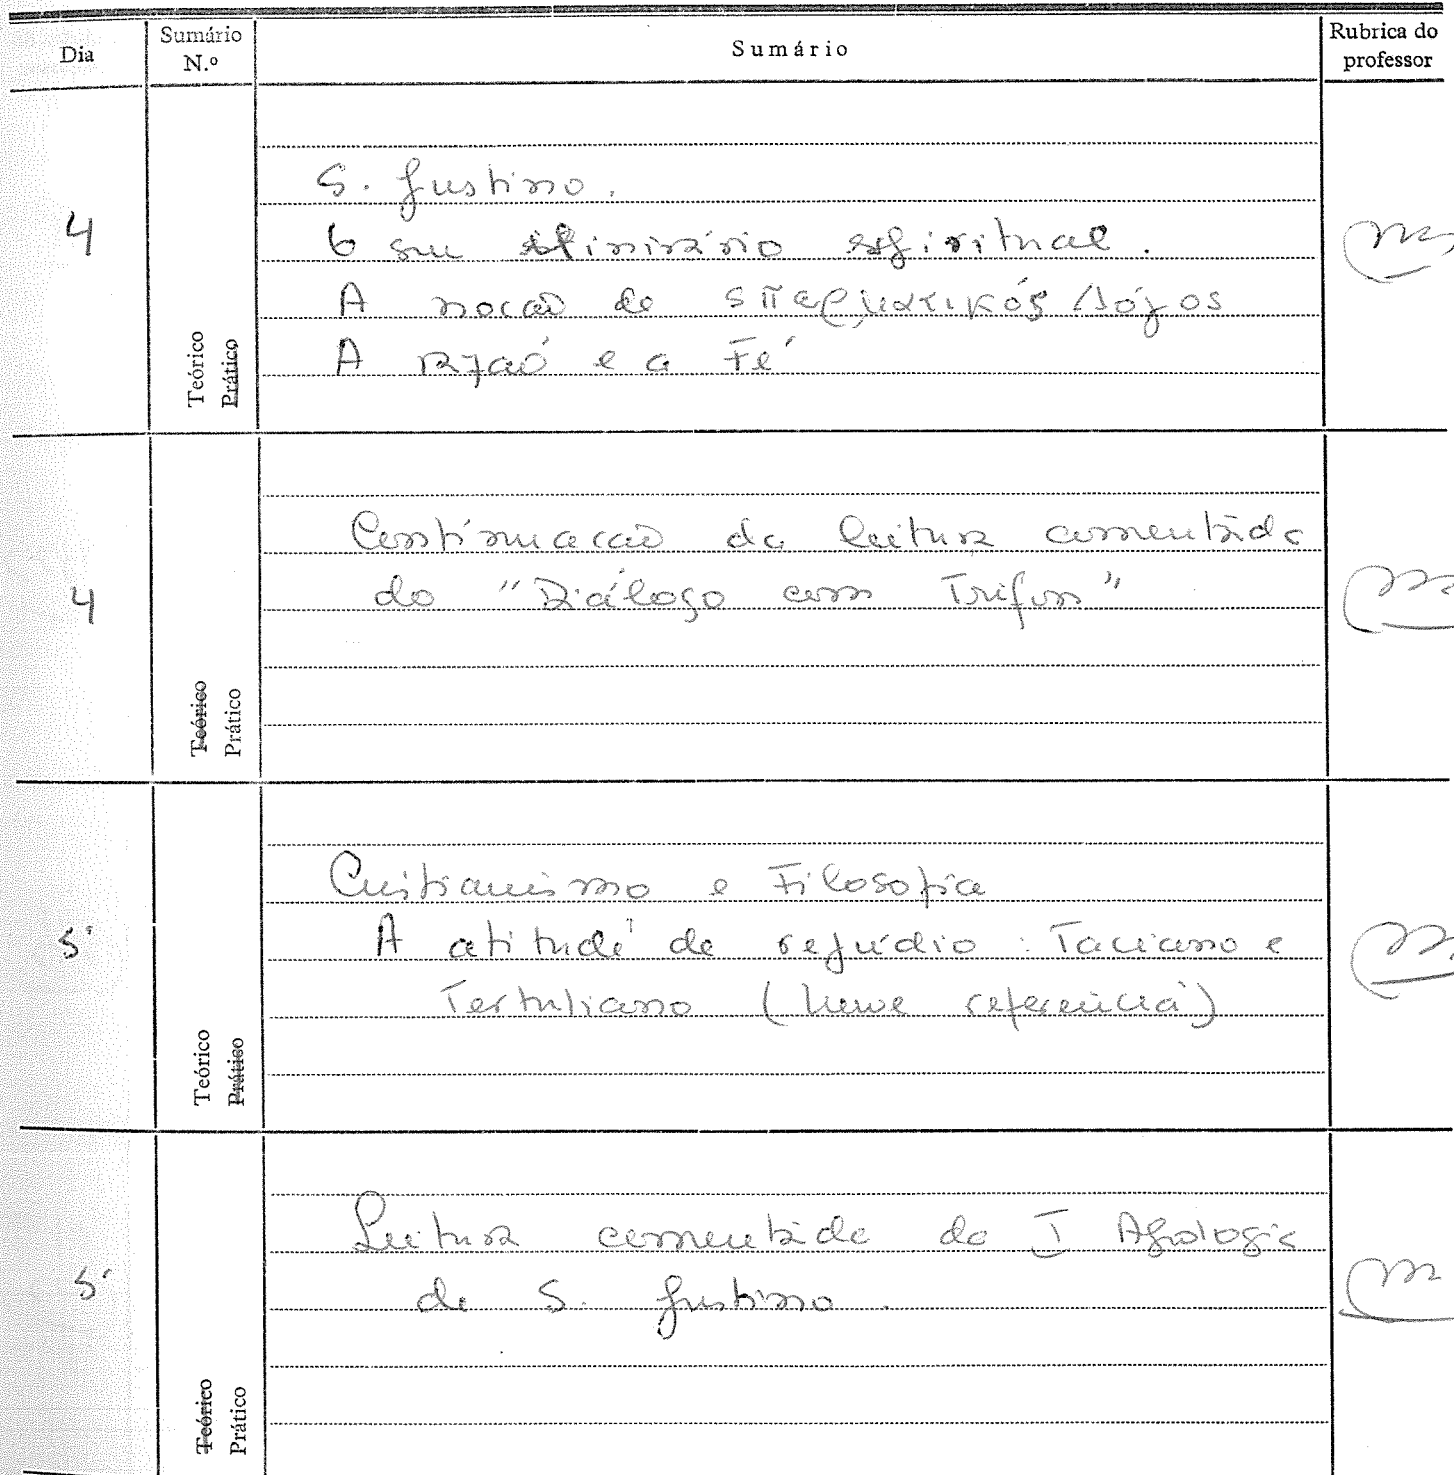 Dia
Sumário N.º
Sumário
Rubrica do professor
4
Teórico
Prático
S. Justino.
O seu itinirário espiritual.
A noção de σπερματικός Λόγος
A razão e a Fé
4
Teórico
Prático
Continuação da leitura comentada
do "Diálogo com Trifon"
5
Teórico
Prático
Cristianismo e Filosofia
A atitude de repúdio: Taciano e
Tertuliano (breve referência)
5
Teórico
Prático
Leitura comentada da I Apologia
de S. Justino.